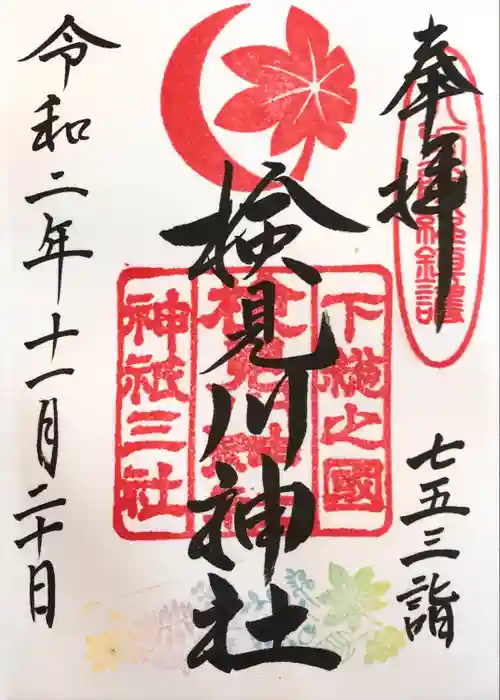 奉拝
七五三詣
検見川神社
下総之國
神祇三社
令和二年十一月二十日